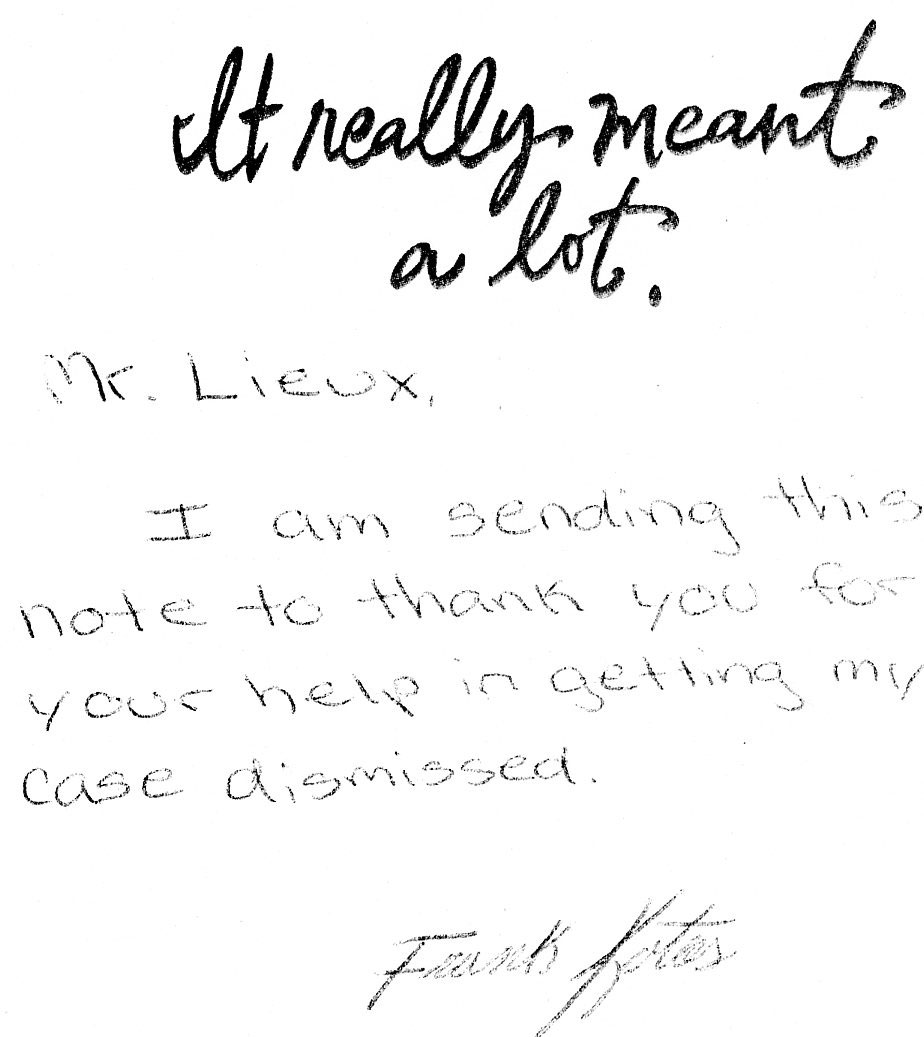 It really meant
a lot.
Mr. Lieux,
I am sending this
note to thank you for
your help in getting my
case dismissed.
Frank